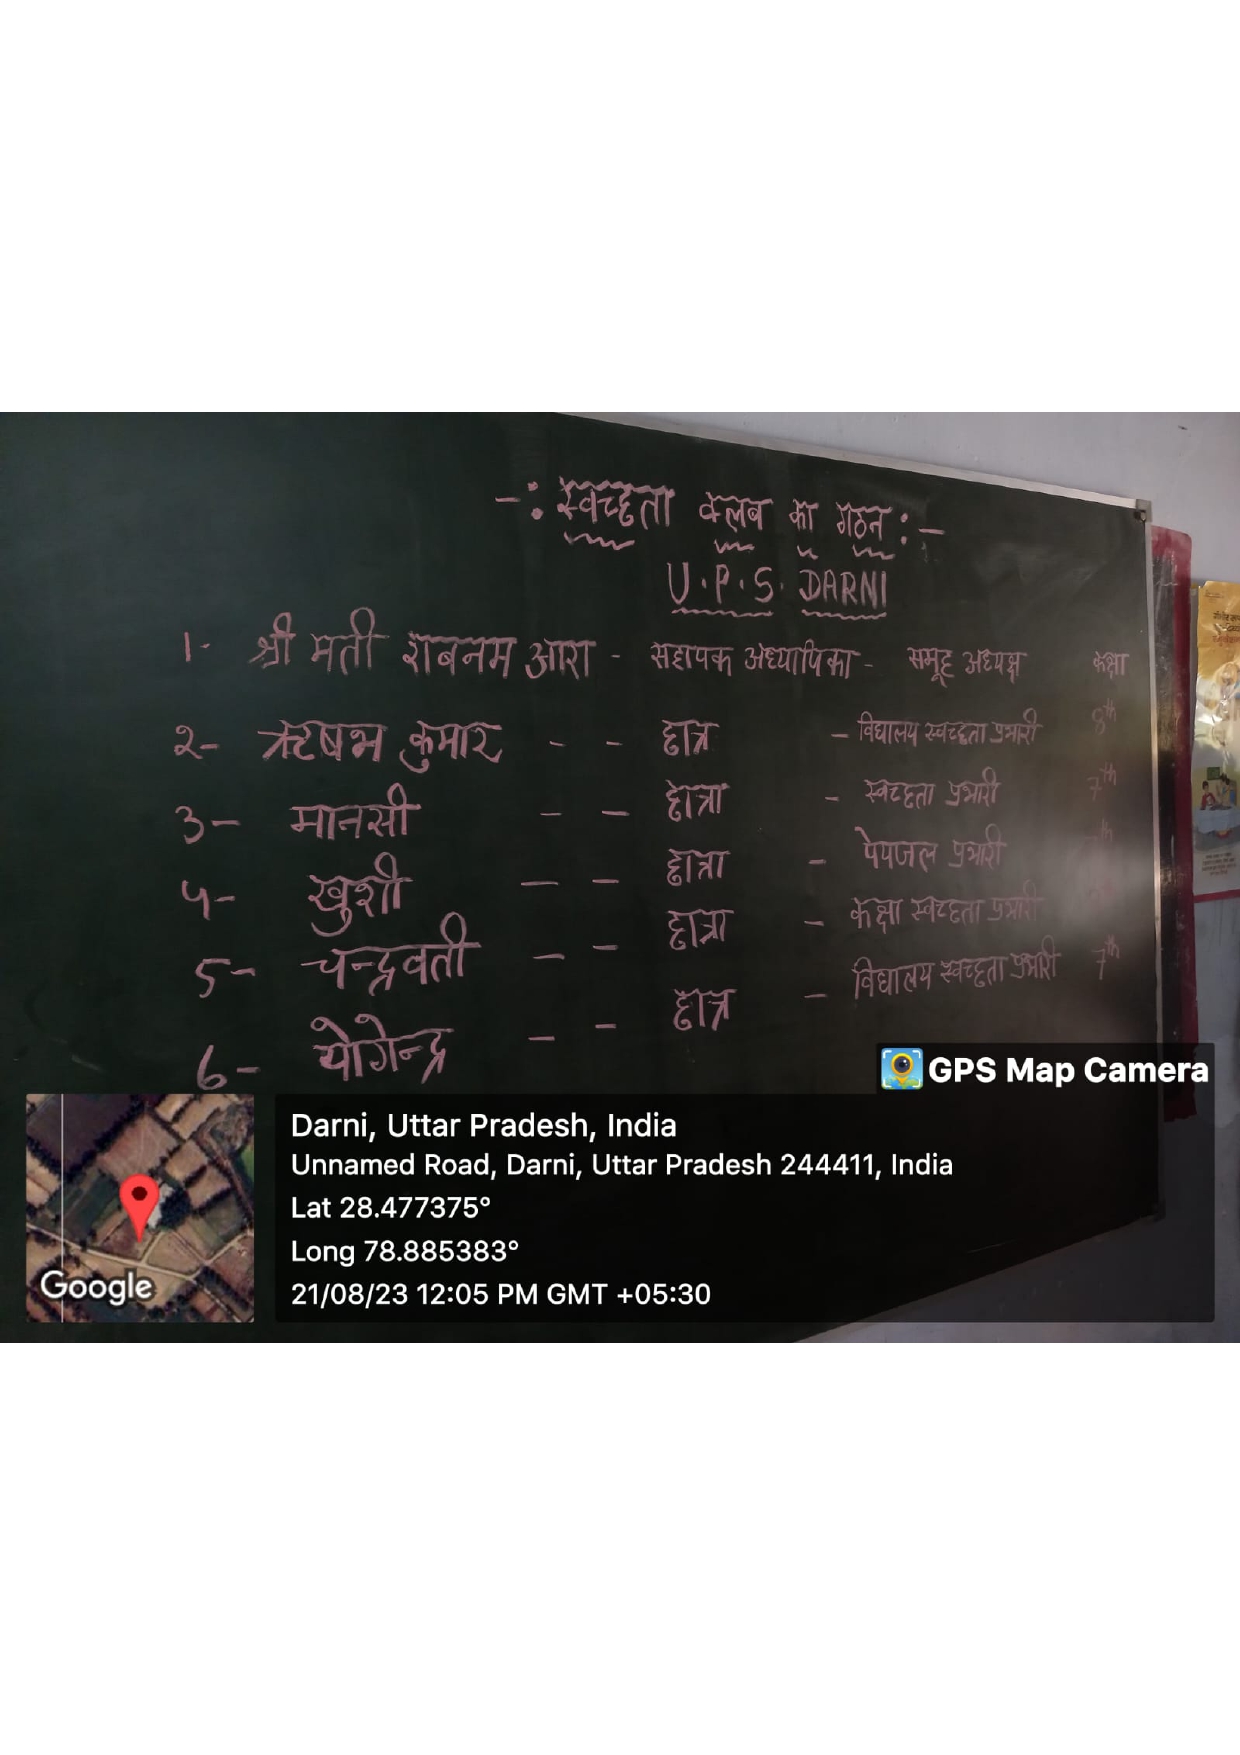 -: स्वच्छता क्लब का गठन :-
U.P.S. DARNI
1- श्री मती शबनम आरा - सहायक अध्यापिका - समूह अध्यक्ष कक्षा
2- ऋषभ कुमार - - छात्र - विद्यालय स्वच्छता प्रभारी 8th
3- मानसी - - छात्रा - स्वच्छता प्रभारी 7th
4- खुशी - - छात्रा - पेयजल प्रभारी
5- चन्द्रवती - - छात्रा - कक्षा स्वच्छता प्रभारी
6- योगेन्द्र - - छात्र - विद्यालय स्वच्छता प्रभारी 7th
GPS Map Camera
Darni, Uttar Pradesh, India
Unnamed Road, Darni, Uttar Pradesh 244411, India
Lat 28.477375°
Long 78.885383°
21/08/23 12:05 PM GMT +05:30
Google